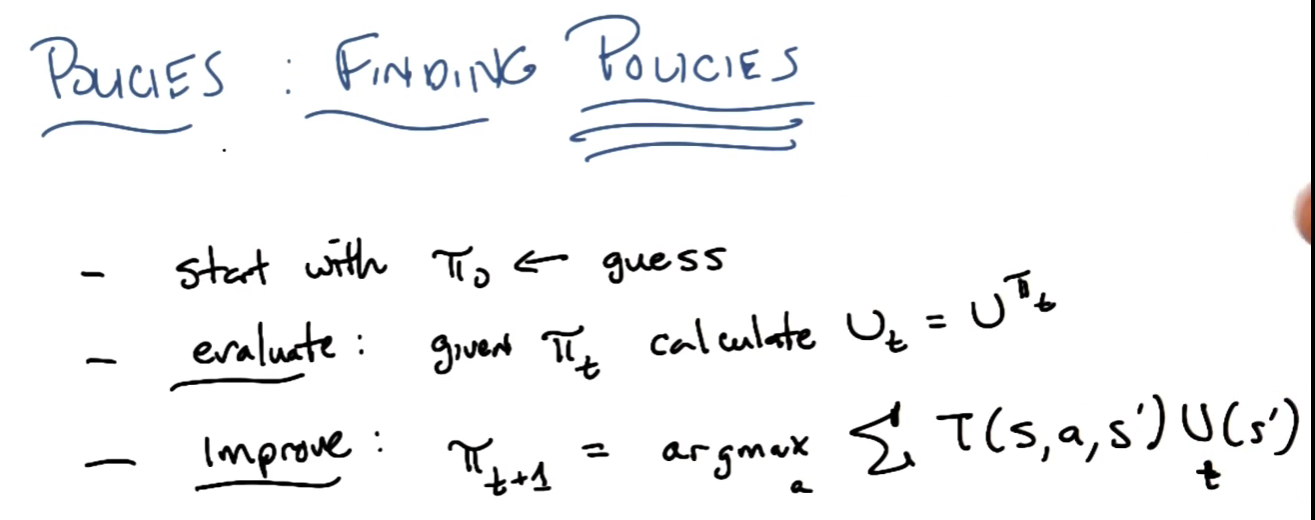 POLICIES : FINDING POLICIES
- start with π₀ ← guess
- evaluate: given π_t calculate U_t = U^π_t
- Improve: π_t+1 = argmax_a Σ T(s,a,s') U_t(s')